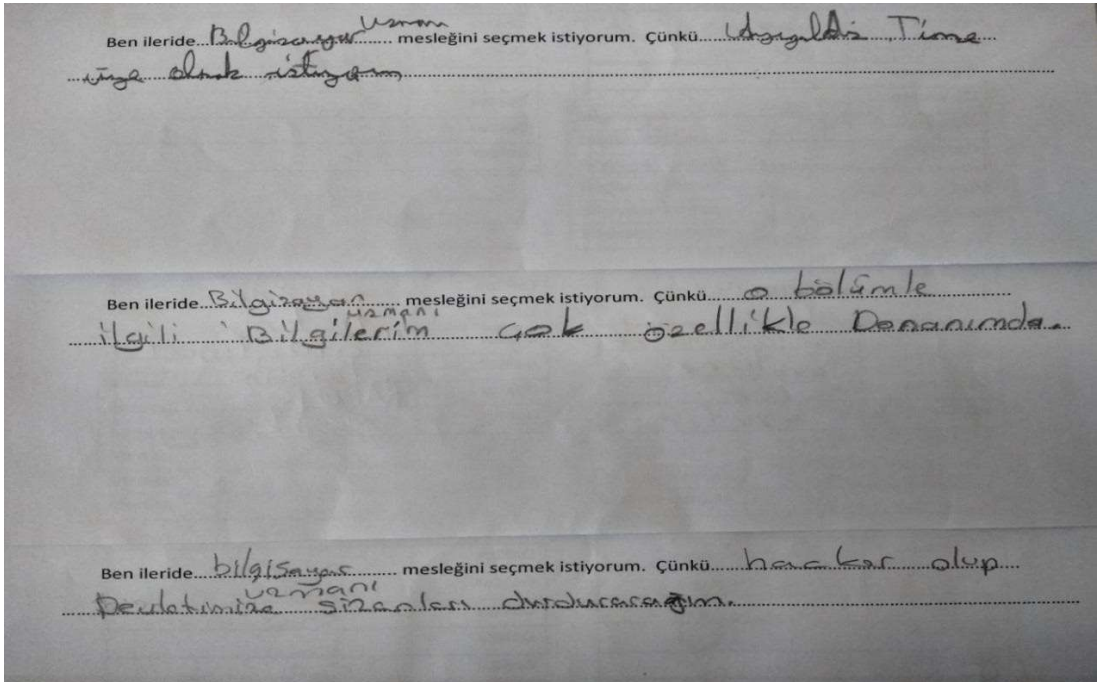 Ben ileride...Bilgisayar Uzmanı........ mesleğini seçmek istiyorum. Çünkü......Ayyıldız Time...
üye olmak istiyom
Ben ileride...Bilgisayar uzmanı....... mesleğini seçmek istiyorum. Çünkü.......o bölümle
ilgili Bilgilerim çok özellikle Donanımda.
Ben ileride...bilgisayar uzmanı....... mesleğini seçmek istiyorum. Çünkü......hacker olup...
Devletimize sızanları durduracağım.